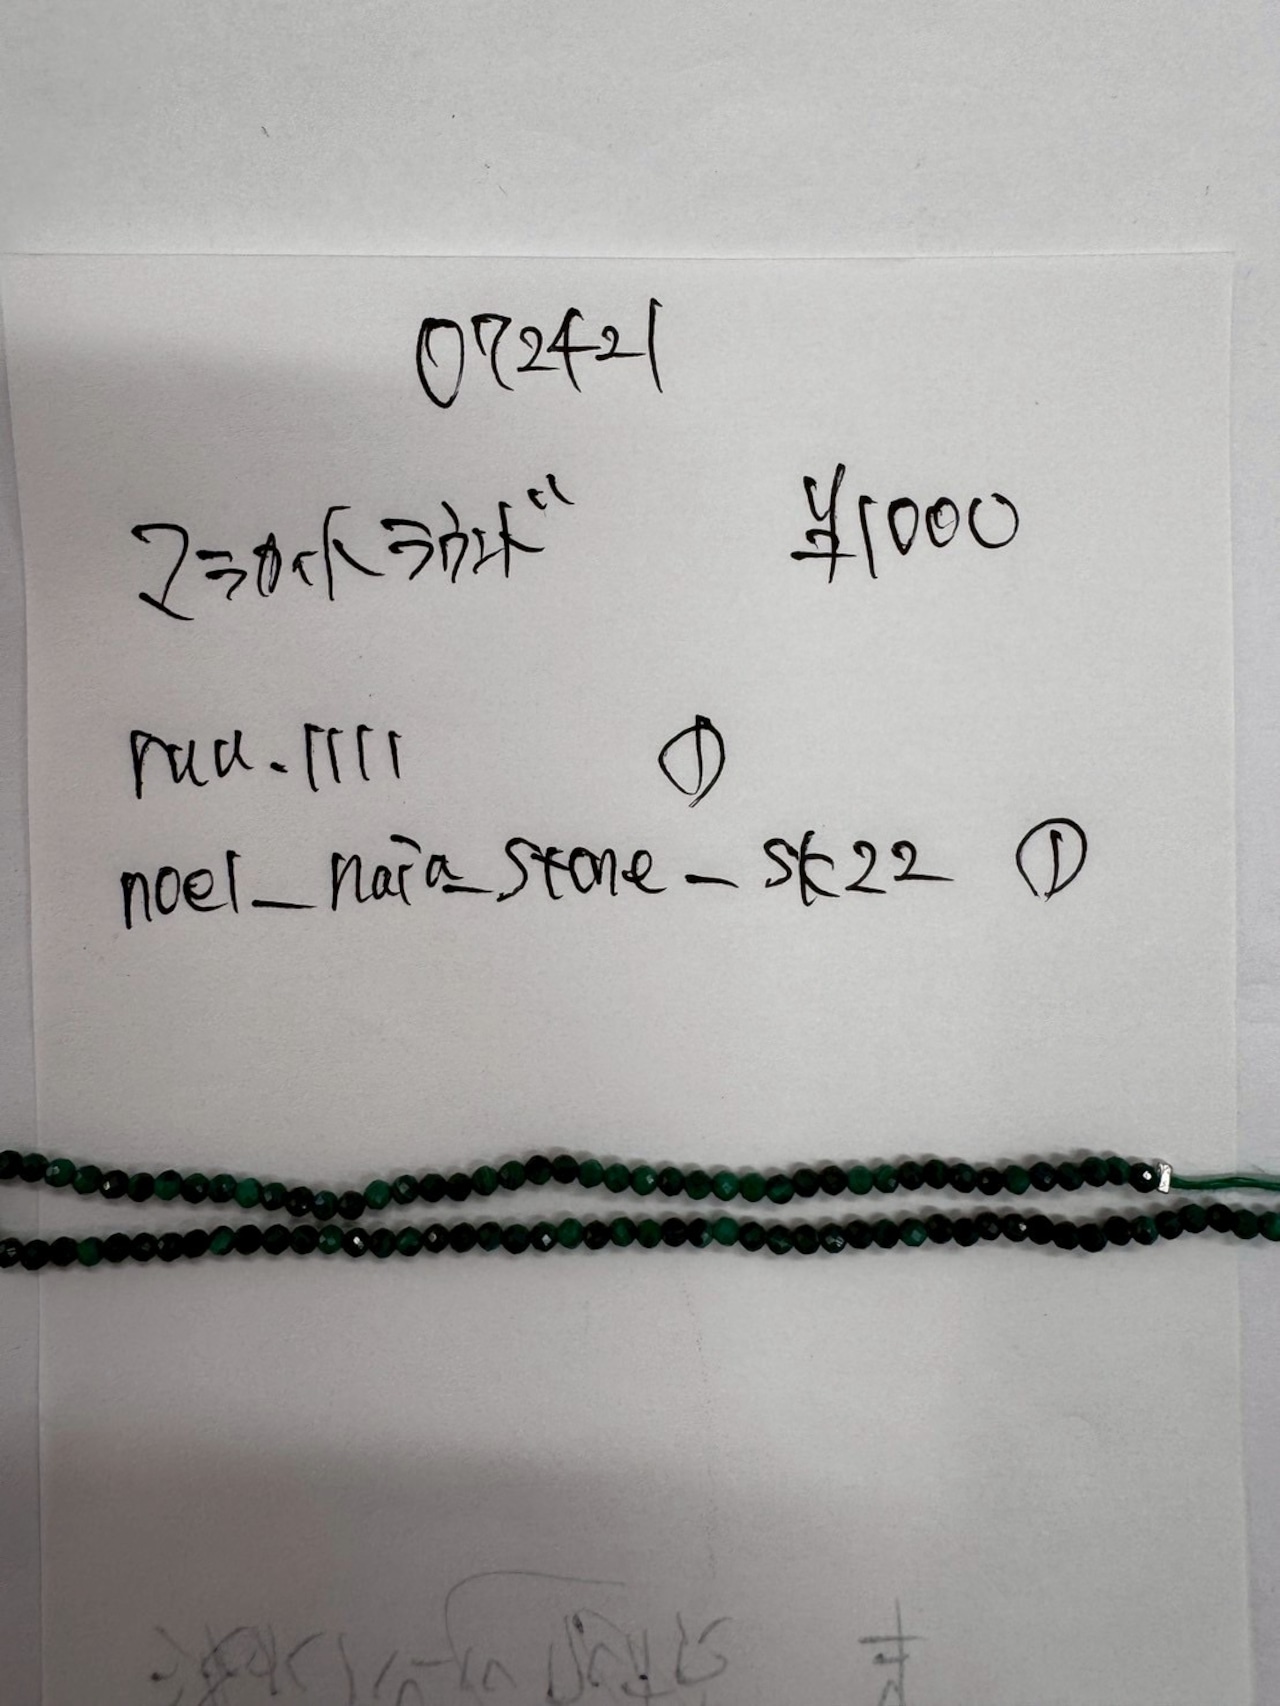 072421
マラカイトラウンド ¥1000
ruu.1111 ①
noel_naia_stone_sk22 ①